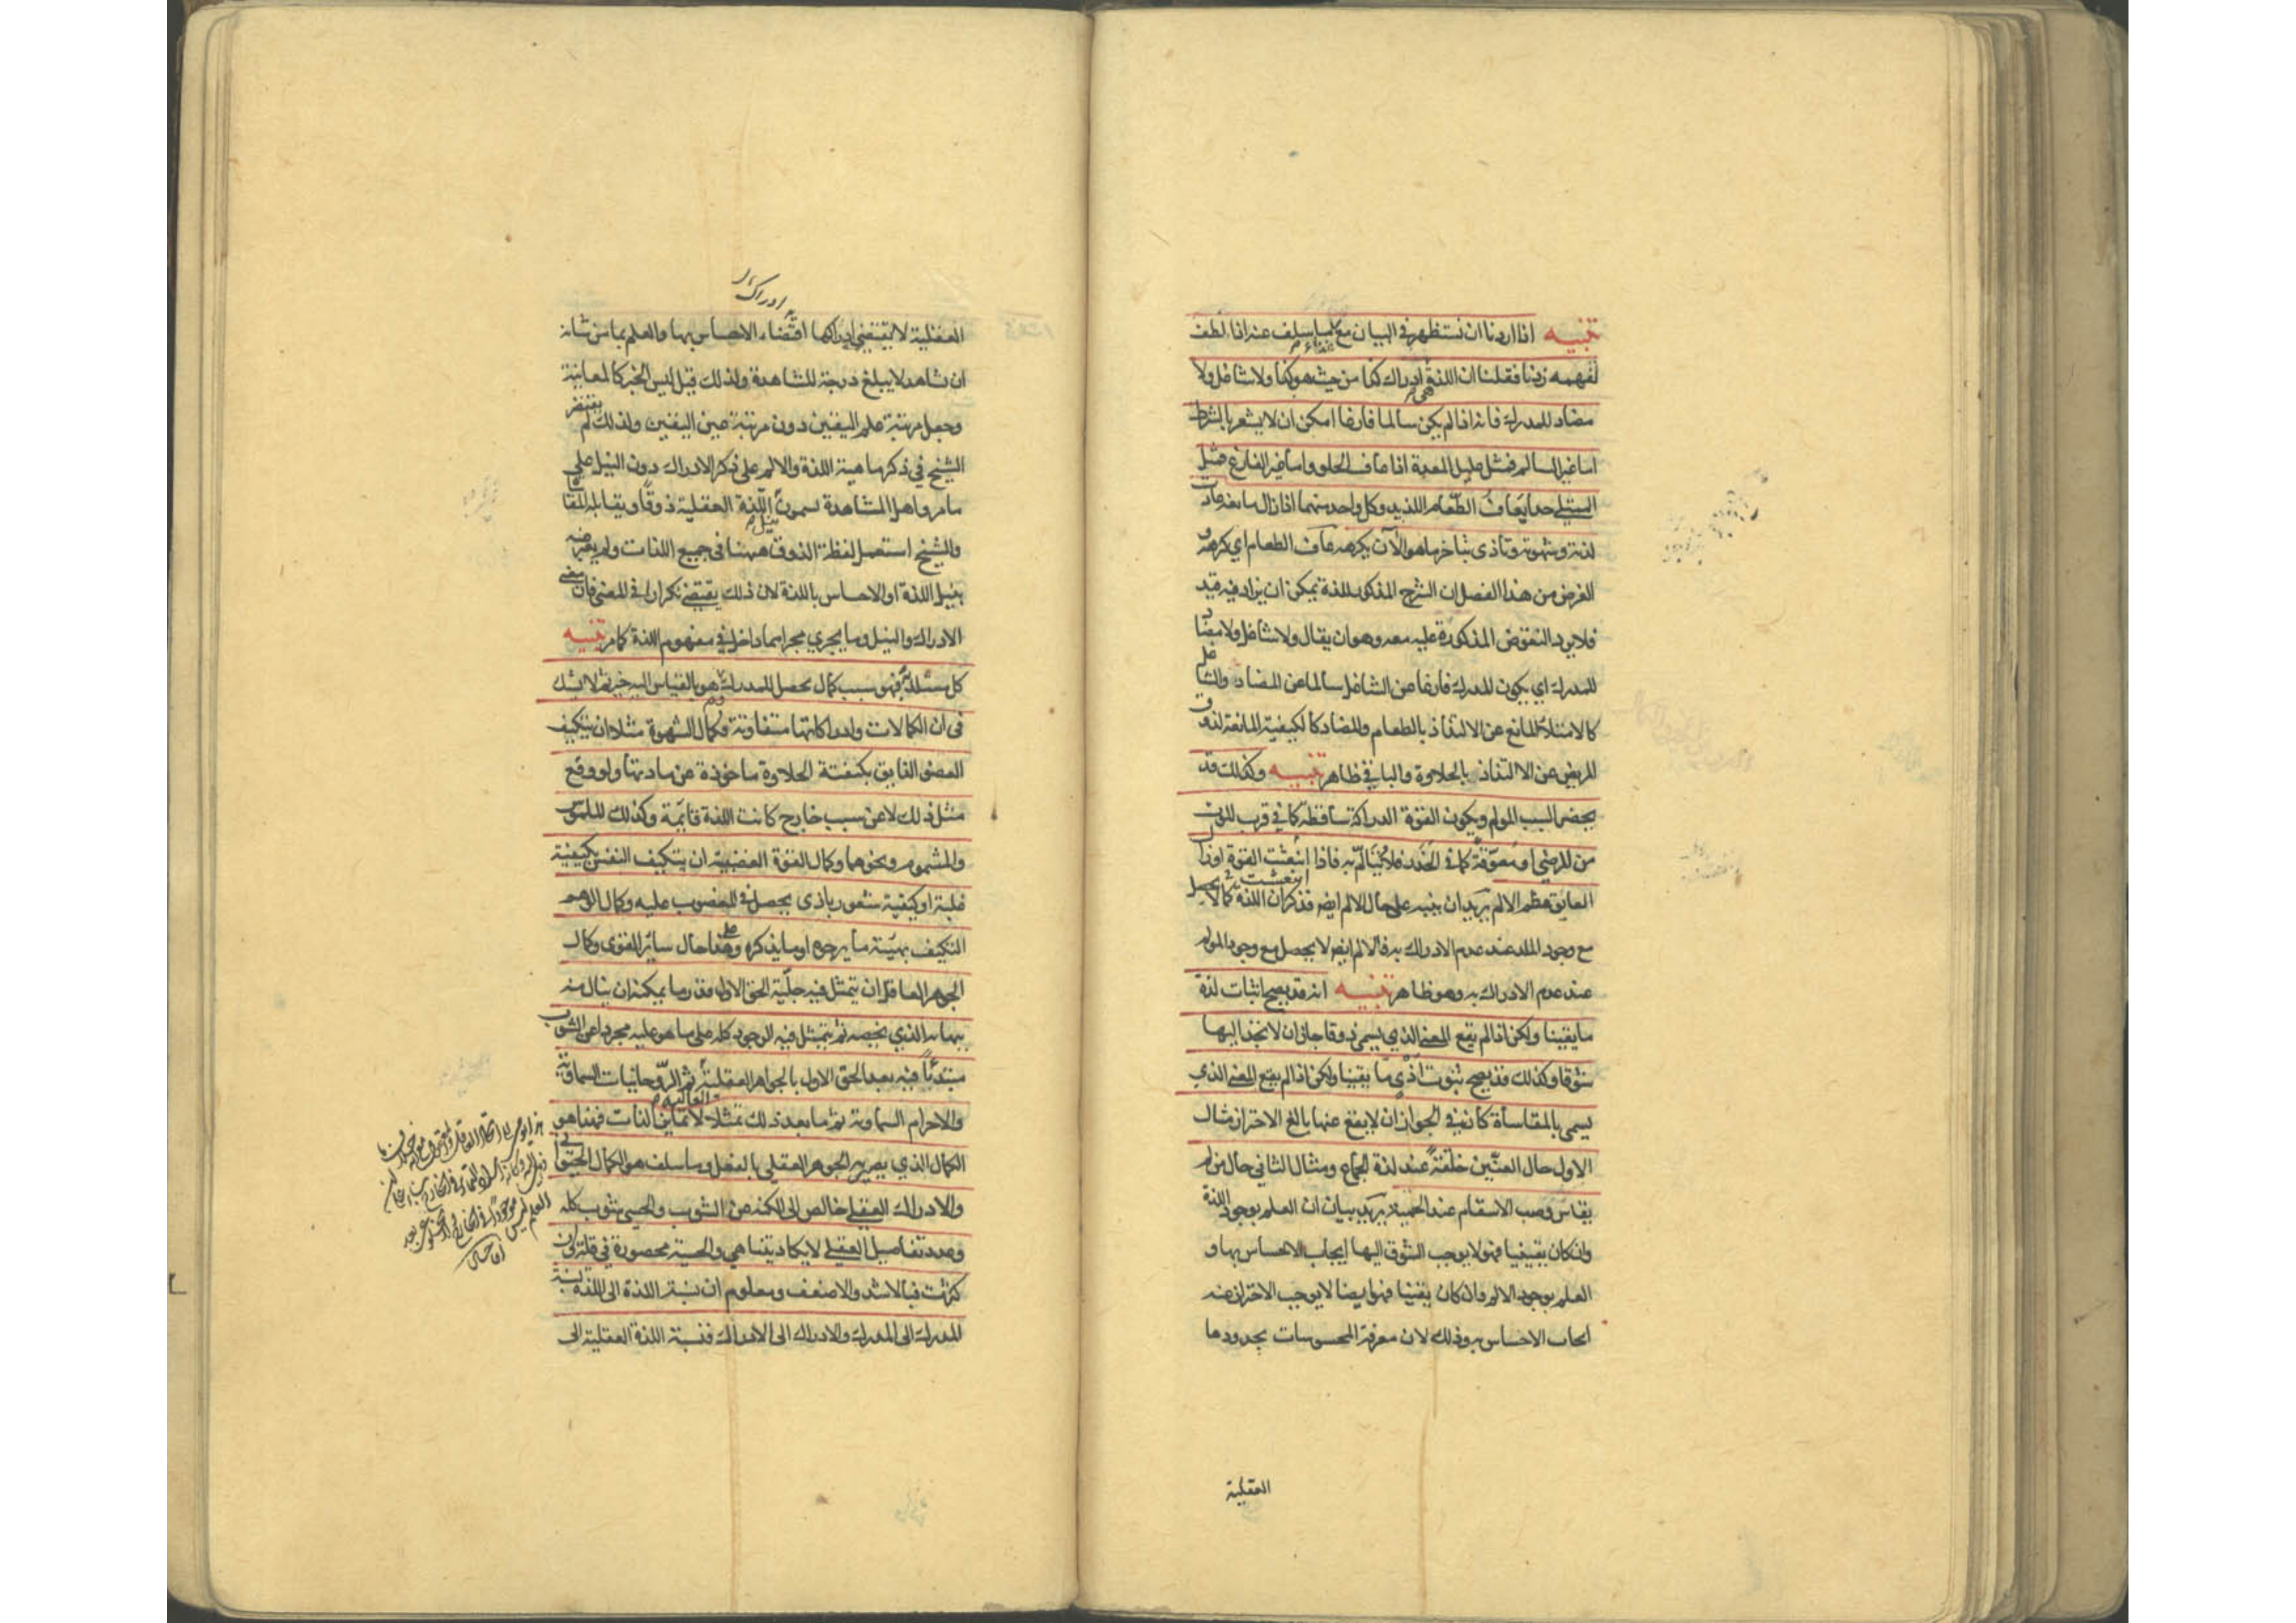 تنبيه اذا اردنا ان نستظهر في البيان مع غناء ما سلف عنه اذا لطف
لفهمه زدنا فقلنا ان اللذة هي ادراك كذا من حيث هو كذا ولا شاغل ولا
مضاد للمدرك فانه اذا لم يكن سالما فارغا امكن ان لا يشعر بالشرط
اما غير السالم فمثل عليل المعدة اذا عاف الحلو واما غير الفارغ فمثل
الممتلي جدا يعاف الطعام اللذيذ وكل واحد منهما اذا زال مانعه عادت
لذته وشهوته وتأذى بتأخر ما هو الآن يكرهه عاف الطعام اي كرهه و
الغرض من هذا الفصل ان الشرح المذكور للذة يمكن ان يزاد فيه قيد
فلا يرد النقوض المذكورة عليه معه وهو ان يقال ولا شاغل ولا مضاد
للمدرك اي يكون المدرك فارغا عن الشاغل سالما عن المضاد والشاغل
كالامتلاء المانع عن الالتذاذ بالطعام والمضاد كالكيفية المانعة لذوق
المريض عن الالتذاذ بالحلاوة والباقي ظاهر تنبيه وكذلك قد
يحضر السبب المولم ويكون القوة الدراكة ساقطة كما في قرب الموت
من المرضى او معوقة كما في الخدر فلا يتالم به فاذا انتعشت القوة او زال
انتعشت
العايق عظم الالم يريد ان ينبه على حال الالم ايضا فذكر ان اللذة كما لا يحصل
مع وجود الملذ عند عدم الادراك به فالالم ايضا لا يحصل مع وجود المولم
عند عدم الادراك به وهو ظاهر تنبيه انه قد يصح اثبات لذة
ما يقينا ولكن اذا لم يقع المعنى الذي يسمى ذوقا جاز ان لا نجد اليها
شوقا وكذلك قد يصح ثبوت اذى ما يقينا ولكن اذا لم يقع المعنى الذي
يسمى بالمقاساة كان في الجواز ان لا يقع عنها بالغ الاحتراز مثال
الاول حال العنين خلقة عند لذة الجماع ومثال الثاني حال من لم
يقاس وصب الاسقام عند الحمية يريد بيان ان العلم بوجود اللذة
وان كان يقينيا فهو لا يوجب الشوق اليها ايجاب الاحساس بها و
العلم بوجود الالم وان كان يقينيا فهو ايضا لا يوجب الاحتراز عنه
ايجاب الاحساس به وذلك لان معرفة المحسوسات بحدودها
العقلية
ادراك
العقلية لا يقتضي ادراكها اقتضاء الاحساس بها والعلم بما من شانه
ان شاهد لا يبلغ درجة المشاهدة ولذلك قيل ليس الخبر كالمعاينة
وجعل مرتبة علم اليقين دون مرتبة عين اليقين ولذلك لم يقتصر
الشيخ في ذكر ماهية اللذة والالم على ذكر الادراك دون النيل على
ما مر واهل المشاهدة يسمون نيل اللذة العقلية ذوقا ويقابله المقاساة
والشيخ استعمل لفظة الذوق ههنا في جميع اللذات ولم يعبر عنه
بنيل اللذة او الاحساس باللذة لان ذلك يقتضي تكرارا في المعنى فان معنى
الادراك والنيل وما يجري مجراهما داخل في مفهوم اللذة كما مر تنبيه
كل مستلذ به فهو سبب كمال يحصل للمدرك وهو بالقياس اليه خير ثم لا يشك
في ان الكمالات وادراكاتها متفاوتة فكمال الشهوة مثلا ان يتكيف
العضو الذايق بكيفية الحلاوة ماخوذة عن مادتها ولو وقع
مثل ذلك لا عن سبب خارج كانت اللذة قايمة وكذلك الملموس
والمشموم ونحوهما وكمال القوة الغضبية ان يتكيف النفس بكيفية
غلبة او كيفية شعور باذى يحصل في المغضوب عليه وكمال الوهم
التكيف بهيئة ما يرجوه او ما يذكره وعلى هذا حال ساير القوى وكمال
الجوهر العاقل ان يتمثل فيه جلية الحق الاول قدر ما يمكنه ان ينال منه
ببهائه الذي يخصه ثم يتمثل فيه الوجود كله على ما هو عليه مجردا عن الشوب
مبتدئا فيه بعد الحق الاول بالجواهر العقلية العالية ثم الروحانيات السماوية
والاجرام السماوية ثم ما بعد ذلك تمثلا لا يمايز الذات فهذا هو
الكمال الذي يصير به الجوهر العقلي بالفعل وما سلف هو الكمال الحيواني
والادراك العقلي خالص الى الكنه عن الشوب والحسي شوب كله
وعدد تفاصيل العقلي لا يكاد يتناهى والحسية محصورة في قلة وان
كثرت فبالاشد والاضعف ومعلوم ان نسبة اللذة الى اللذة نسبة
المدرك الى المدرك والادراك الى الادراك فنسبة اللذة العقلية الى